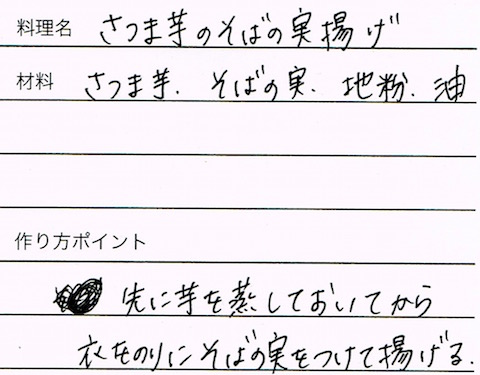 料理名 さつま芋のそばの実揚げ
材料 さつま芋. そばの実. 地粉. 油
作り方ポイント
先に芋を蒸しておいてから
衣をのりにそばの実をつけて揚げる.